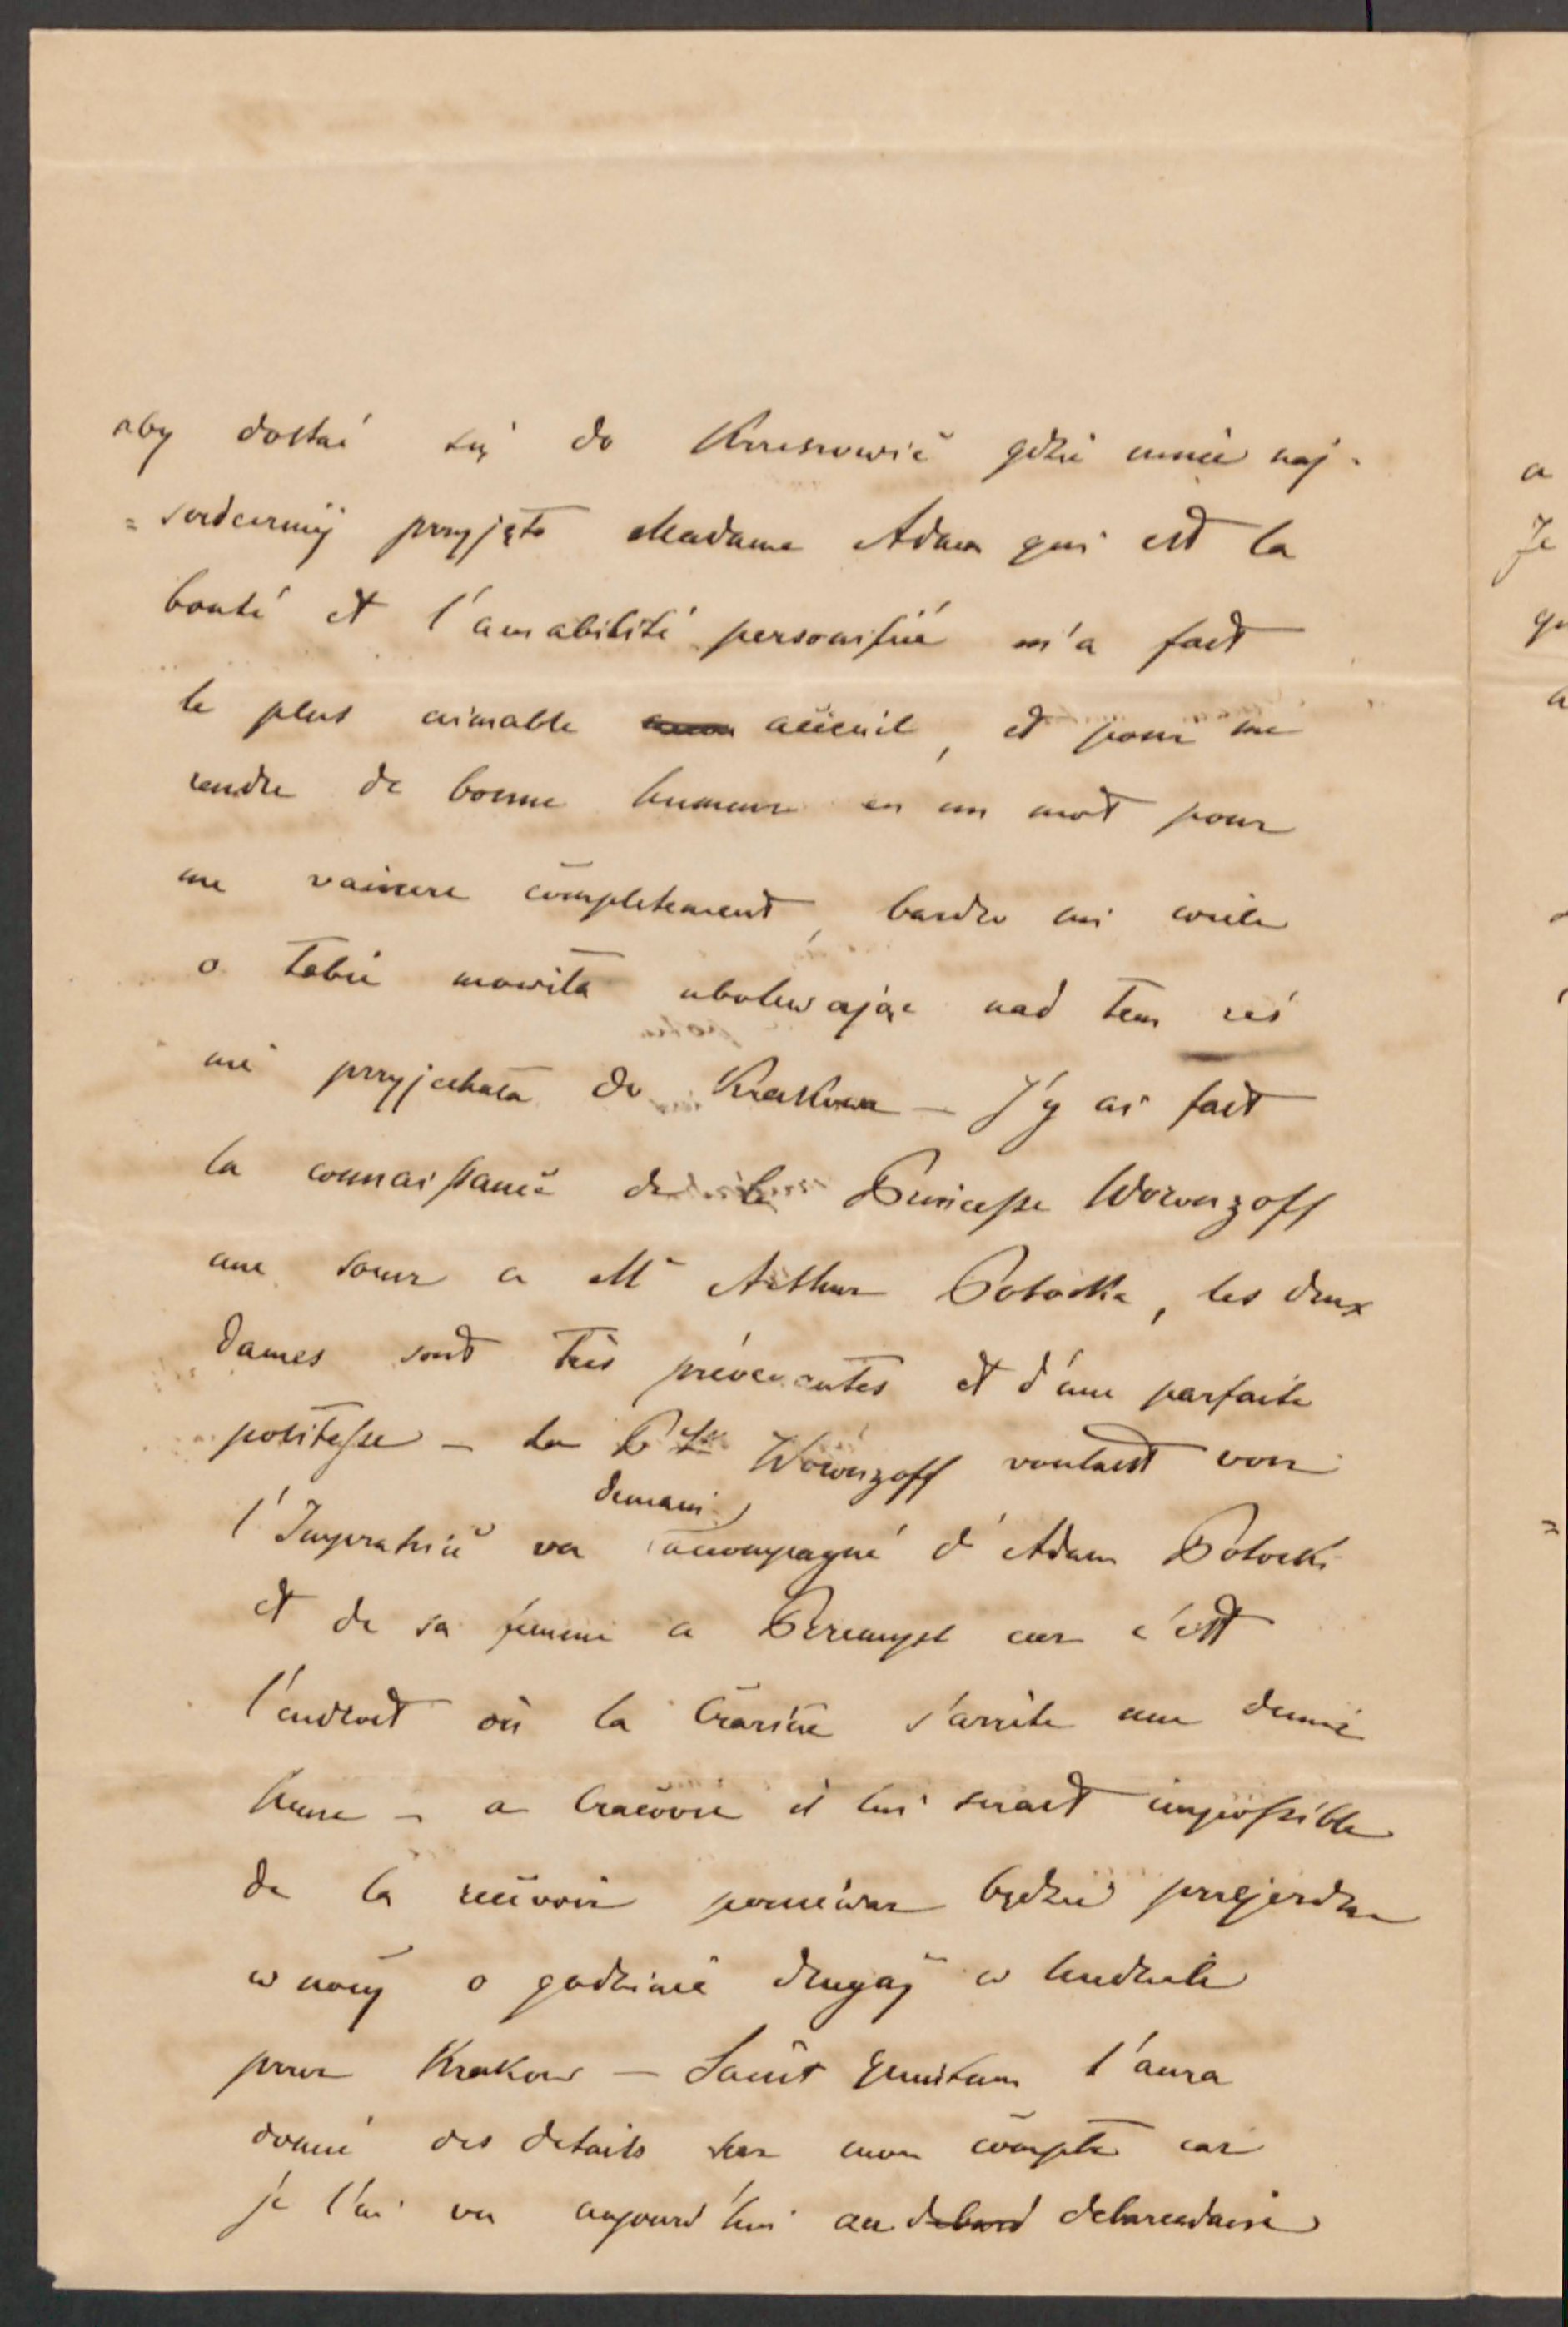 aby dostać się do Krzeszowic gdzie mnie naj-
=serdeczniej przyjęto Madame Adam qui est la
bonté et l'amabilité personifiée m'a fait
le plus aimable accueil, et pour me
rendre de bonne humeur en un mot pour
me vaincre completement, bardzo mi wiele
o Tobie mowiła ubolewając nad tem żeś
nie przyjechała do Krakowa — J'y ai fait
la connaissance de la Princesse Woronzoff
une soeur a Me Arthur Potocka, les deux
dames sont très prévenantes et d'une parfaite
politesse — La Psse Woronzoff voulant voir
l'Imperatrice va demain accompagné d'Adam Potocki
et de sa femme a Przemysl car c'est
l'endroit où la Czarine s'arrête une demie
heure — a Cracovie il lui serait impossible
de la recevoir ponieważ będzie przejeżdza
w nocy o godzinie drugiej w
przez Krakow — Saint Quentin t'aura
donné des details sur mon compte car
je l'ai vu aujourd'hui au debard debarcadaire